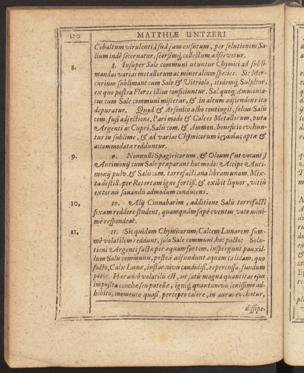 120 MATTHIÆ UNTZERI
Cobaltum virulenti assudsum ensutum, per solutionem Sa-
lium indè secernatur, seorsimq; collectum asservetur.
8. 8. Insuper Sale communi utuntur Chymici ad subli-
mandas varias metallorum ac mineralium species. Sic Mer-
curium sublimant cum Sale & Vitriolo, itidemq; Sulphur,
ex quo postea Flores illius conficiuntur. Sal quoq; Ammonia-
cus cum Sale communi miscetur, & in altum ascendens ita
depuratur. Quod & Arsenico albo contingit, solius Salis
com. fusi adjectione. Pari modo & Calces Metallorum, puta
Argenti ac Cupri, Salis com. & Alumen. beneficio evehun-
tur in sublime, & ad varias Chymicorum
accommodata redduntur.
9. 9. Nonnulli Spagiricorum, & Oleum (ut vocant)
Antimonij cum Sale præparant hoc modo: Recipe Anti-
monij pulv. & Salis com. torrefacti ana libram unam. Mix-
ta destill. per Retortam igne forti, & exibit liquor, vitiis
externis sanandis admodum conducens.
10. 10. Alij Cinnabarim, additione Salis torrefacti
fixam reddere student, quanquam sæpè eventus voto mini-
mè respondeat.
11. 11. Sic quidam Chymicorum Calcem Lunarem sum-
mè volatilem reddunt, solo Sale communi hoc pacto: Solu-
tioni Argenti factæ per aquam fortem, inspergunt pauxil-
lum Salis communis, postea adfundunt aquam calidam, quo
facto, Calx Lunæ, instar nivis candidiss. repercussa, fundum
petit. Hæc adeò volatilis est, ut satis magna quantitas ejus
imposita conchæ seu patellæ, ignis quantumvis lenissimo ad-
hibito, momento quasi, percepto calore, in auras evehatur,
dissipe-